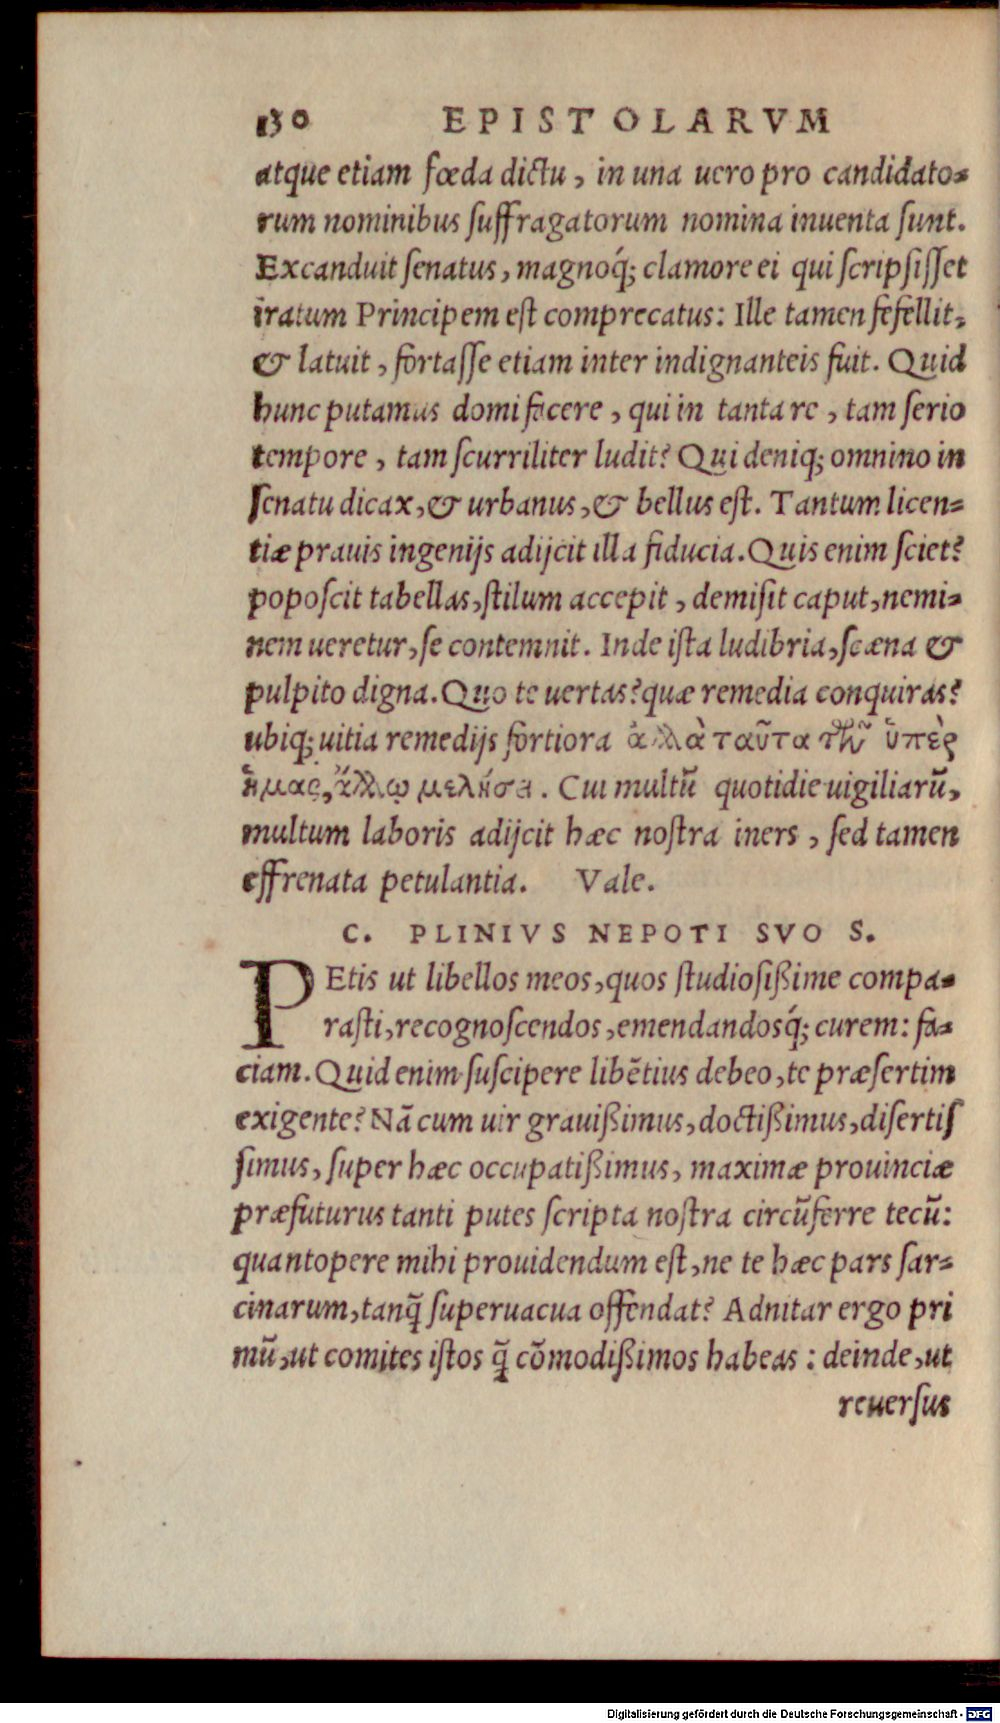 130 EPISTOLARVM
atque etiam fœda dictu, in una uero pro candidato-
rum nominibus suffragatorum nomina inuenta sunt.
Excanduit senatus, magnoq́; clamore ei qui scripsisset
iratum Principem est comprecatus: Ille tamen fefellit,
& latuit, fortasse etiam inter indignanteis fuit. Quid
hunc putamus domi facere, qui in tanta re, tam serio
tempore, tam scurriliter ludit? Qui deniq; omnino in
senatu dicax, & urbanus, & bellus est. Tantum licen-
tiæ prauis ingenijs adijcit illa fiducia. Quis enim sciet?
poposcit tabellas, stilum accepit, demisit caput, nemi-
nem ueretur, se contemnit. Inde ista ludibria, scæna &
pulpito digna. Quo te uertas? quæ remedia conquiras?
ubiq; uitia remedijs fortiora ἀλλὰ ταῦτα τῶν ὑπὲρ
ἡμας, ἄλλῳ μελήσει. Cui multũ quotidie uigiliarũ,
multum laboris adijcit hæc nostra iners, sed tamen
effrenata petulantia. Vale.
C. PLINIVS NEPOTI SVO S.
PEtis ut libellos meos, quos studiosißime compa-
rasti, recognoscendos, emendandosq́; curem: fa-
ciam. Quid enim suscipere libẽtius debeo, te præsertim
exigente? Nã cum uir grauißimus, doctißimus, disertis
simus, super hæc occupatißimus, maximæ prouinciæ
præfuturus tanti putes scripta nostra circũferre tecũ:
quantopere mihi prouidendum est, ne te hæc pars sar-
cinarum, tanq̃ superuacua offendat? Adnitar ergo pri
mũ, ut comites istos q̃ cõmodißimos habeas: deinde, ut
reuersus
Digitalisierung gefördert durch die Deutsche Forschungsgemeinschaft - DFG